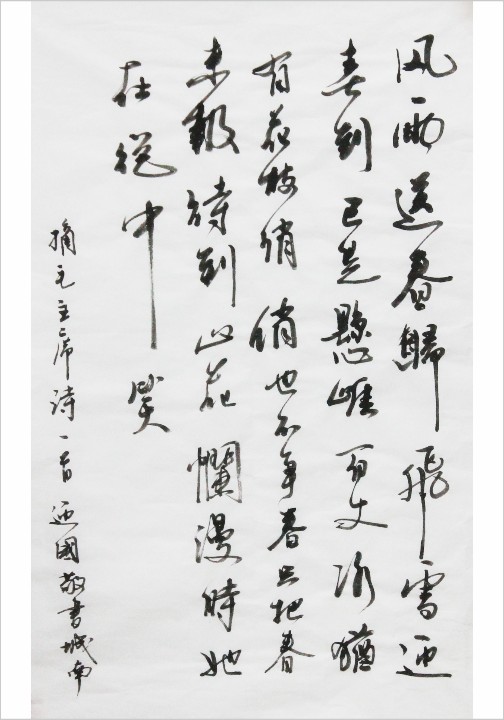 风雨送春歸飛雪迎
春到已是懸崖百丈冰猶
有花枝俏俏也不争春只把春
来報待到山花爛漫時她
在叢中笑
摘毛主席詩一首 迎國敬書城南